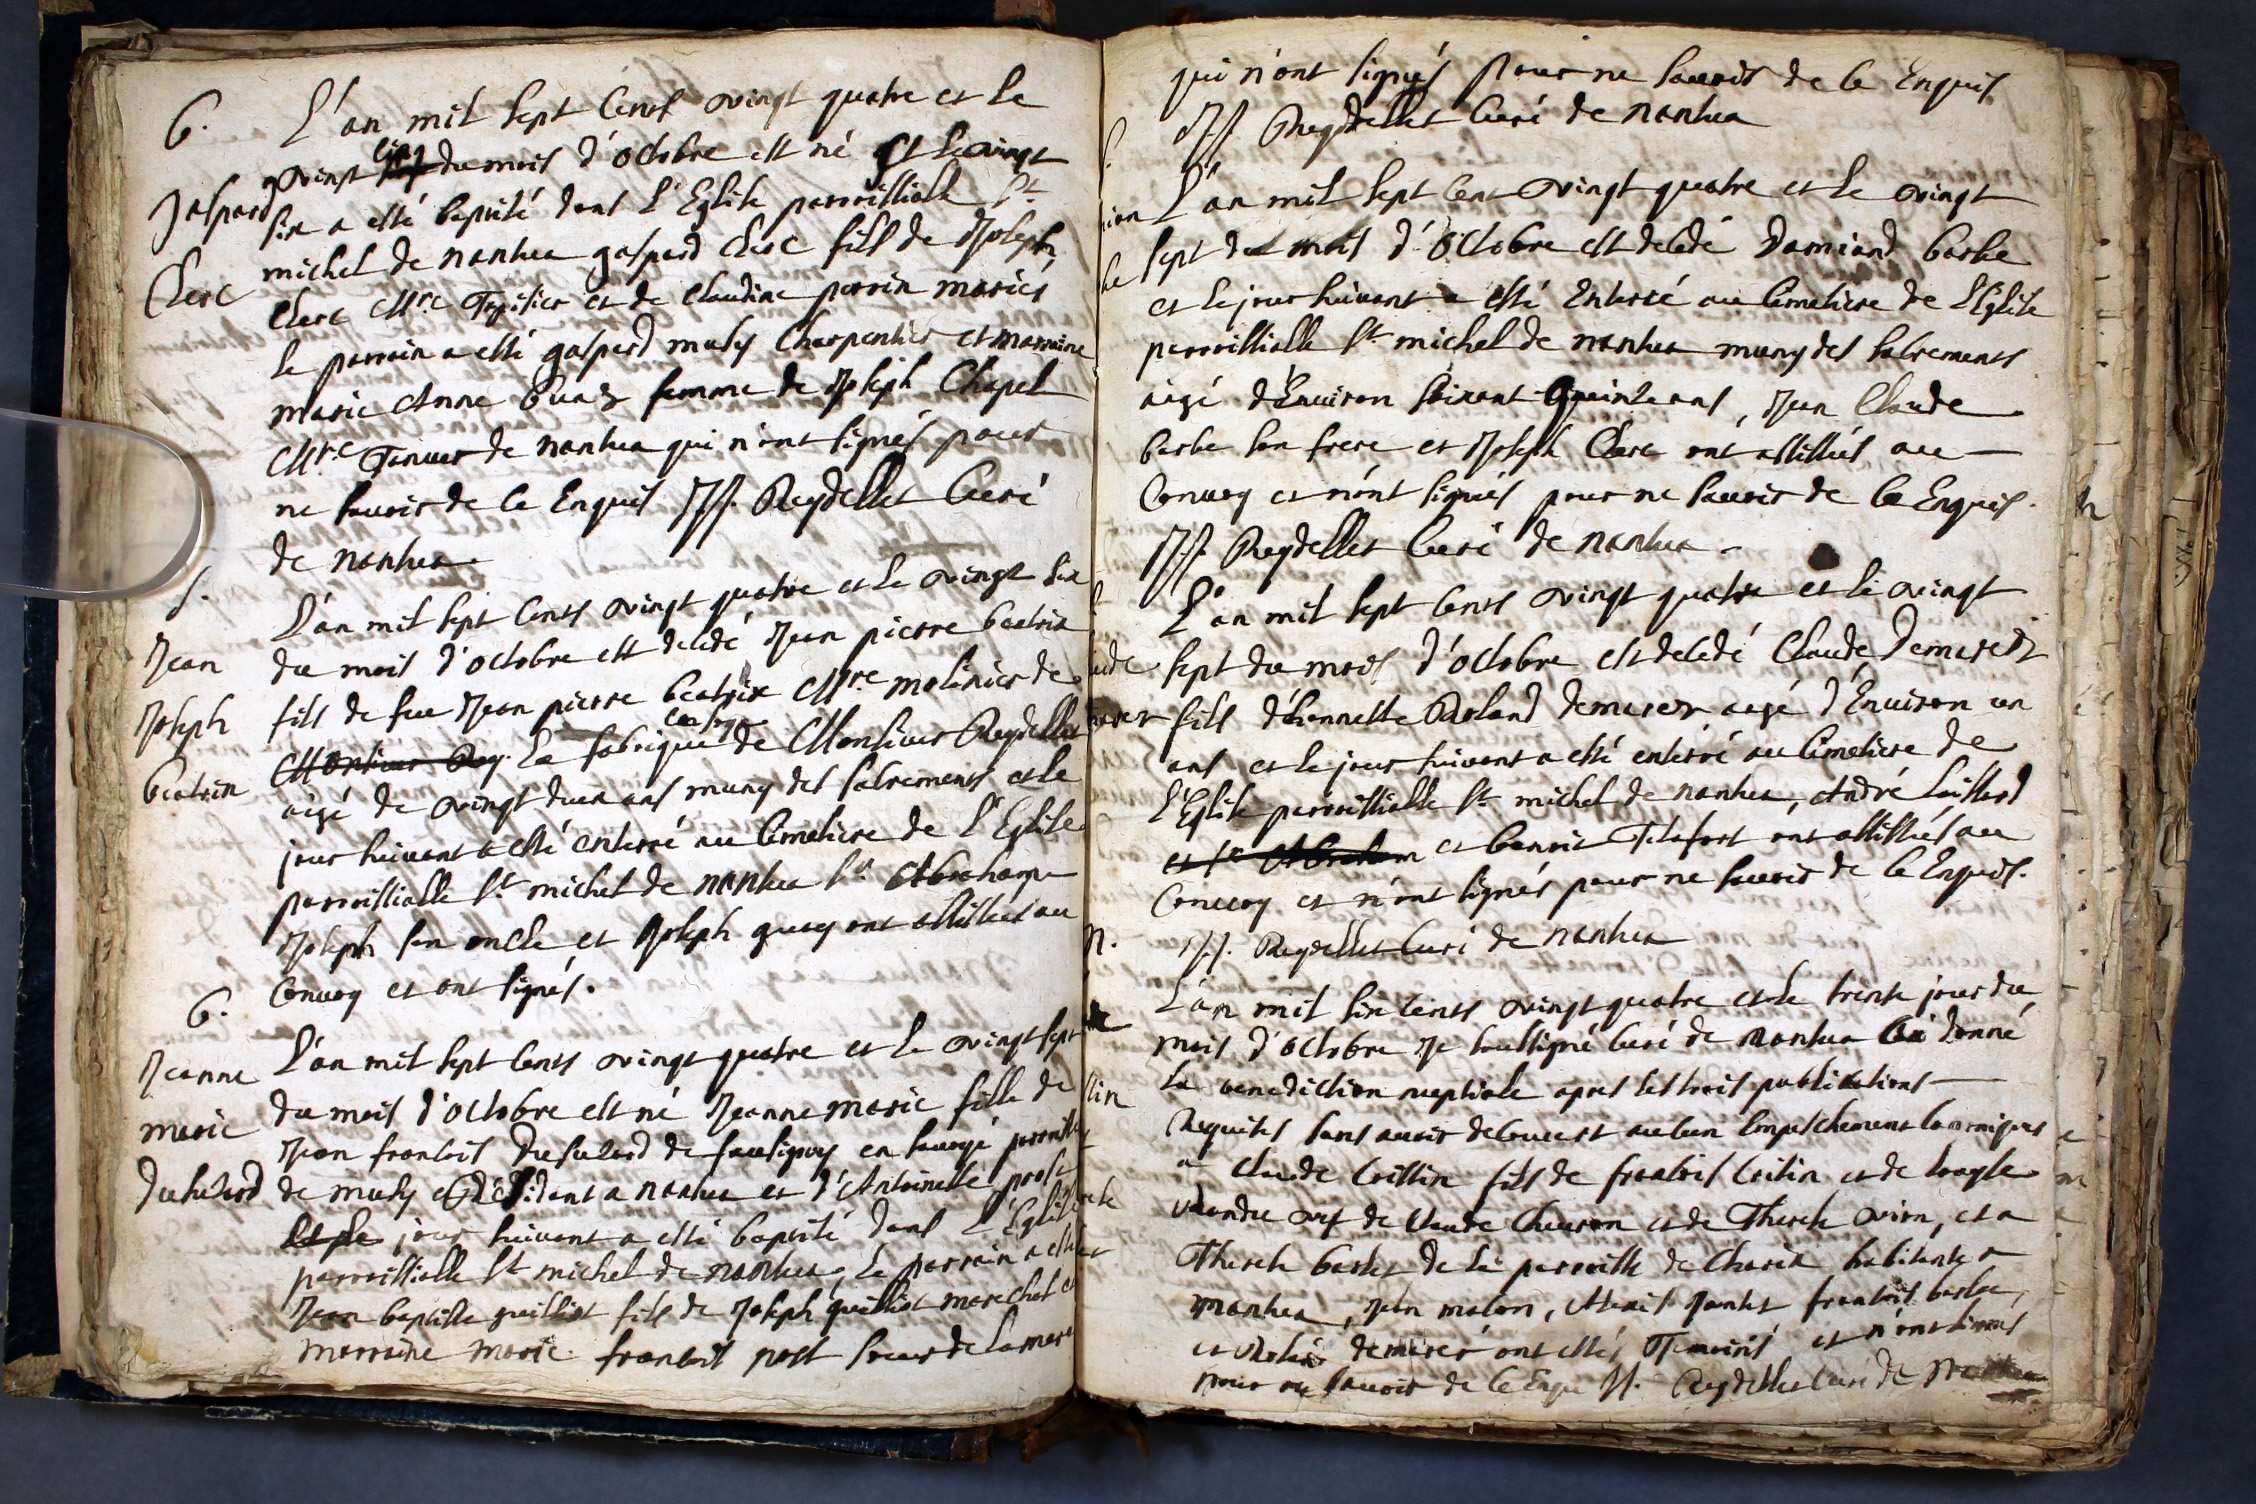 6.
L'an mil sept Cents vingt quatre et le
vingt cinq du mois d'octobre est né et le vingt
Jaspard
six a esté baptisé dans l'Eglise parroissialle St
Clerc
michel de nantua gaspard Clerc fils de Joseph
Clerc Mre Tissier et de Claudine perrin mariés
le parrain a esté gaspard musy Charpentier et marraine
marie Anne femme de Joseph Chapel
Mre Taneur de nantua qui n'ont signés pour
ne scavoir de ce Enquis JJ. Reydellet Curé
de nantua
S.
L'an mil sept Cents vingt quatre et le vingt six
Jean
du mois d'octobre est decedé Jean pierre beatrix
Joseph
fils de feu Jean pierre beatrix Mre molinier de
beatrix
Monsieur Rey. La fabrique de Monsieur Reydellet
aigé de vingt deux ans muny des sacrements et le
jour suivant a esté enterré au Cimetiere de l'Eglise
parroissialle St michel de nantua Sr Abraham
Joseph son oncle et Joseph ont assistés au
Convoy et ont signés.
6.
L'an mil sept Cents vingt quatre et le vingt sept
Jeanne
marie
du mois d'octobre est né Jeanne marie fille de
Jean francois Dusulard de fausigny en savoye parroisse
Dusulard
de musy Residant a nantua et d'Antoinette post
et le jour suivant a esté baptisé dans l'Eglise
parroissialle St michel de nantua, Le parrain a esté
Jean baptiste guilliot fils de Joseph guilliot marechal et
marraine marie francois post soeur de la mere
qui n'ont signés pour ne scavoir de ce Enquis
JJ. Reydellet Curé de nantua
L'an mil sept Cent vingt quatre et le vingt
sept du mois d'octobre est decedé Damiand barbe
et le jour suivant a esté Enterré au Cimetiere de l'Eglise
parroissialle St michel de nantua muny des sacrements
aigé d'Environ soixant quinze ans, Jean Claude
barbe son frere et Joseph Clerc ont assistés au
Convoy et n'ont signés pour ne scavoir de ce Enquis.
JJ. Reydellet Curé de nantua
L'an mil sept Cents vingt quatre et le vingt
sept du mois d'octobre est decedé Claude Demerez
fils d'Ennette Roland demerez aigé d'Environ un
ans et le jour suivant a esté enterré au Cimetiere de
l'Eglise parroissialle St michel de nantua, André
et Sr Abraham et benoit ont assistés au
Convoy et n'ont signés pour ne scavoir de ce Enquis.
JJ. Reydellet Curé de nantua
L'an mil six Cents vingt quatre et le trente jour du
mois d'octobre Je soussigné Curé de nantua ai donné
La benediction nuptiale apres les trois publications
Requises sans avoir decouvert aucun Empeschement Canonique
a Claude Crittin fils de francois Critin et de
de Claude et de Therese, et a
Therese barbe de la parroisse de Charix habitante a
nantua, Jean maton, francois barbe,
et demerez ont estés Temoins et n'ont signés
pour ne scavoir de ce Enquis JJ. Reydellet Curé de Nantua